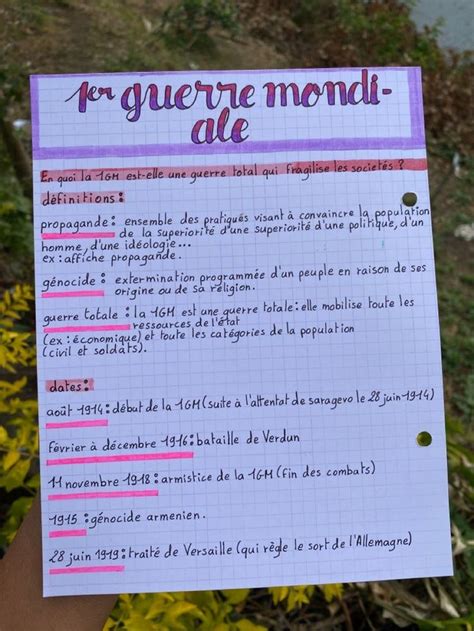 1er guerre mondi-
ale
En quoi la 1GM est-elle une guerre total qui fragilise les societés ?
définitions :
propagande : ensemble des pratiqués visant à convaincre la population
de la superiorité d'une superiorité d'une politique, d'un
homme, d'une idéologie...
ex : affiche propagande.
génocide : extermination programmée d'un peuple en raison de ses
origine ou de sa réligion.
guerre totale : la 1GM est une guerre totale : elle mobilise toute les
ressources de l'état
(ex : économique) et toute les catégories de la population
(civil et soldats).
dates :
août 1914 : début de la 1GM (suite à l'attentat de saragevo le 28 juin 1914)
février à décembre 1916 : bataille de Verdun
11 novembre 1918 : armistice de la 1GM (fin des combats)
1915 : génocide armenien.
28 juin 1919 : traité de Versaille (qui règle le sort de l'Allemagne)